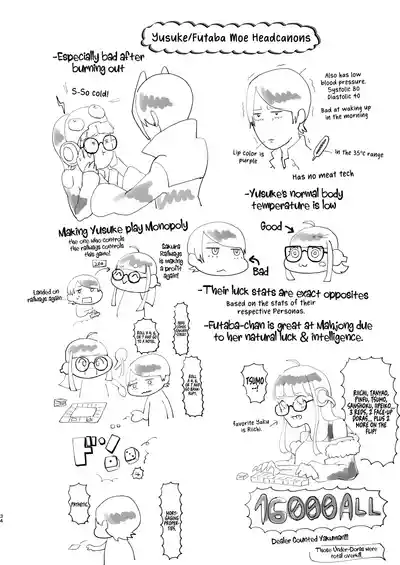 Yusuke/Futaba Moe Headcanons
-Especially bad after
burning out
S-So cold!
Also has low
blood pressure.
Systolic 80
Diastolic 40
Bad at waking up
in the morning
Lip color is
purple
In the 35°C range
Has no meat tech
-Yusuke's normal body
temperature is low
Making Yusuke play Monopoly
The one who controls
the railways controls
this game!
Sakura
Railways is
making a
profit again!
Landed on
railways again
Good →
Bad
-Their luck stats are exact opposites
Based on the stats of their
respective Personas.
-Futaba-chan is great at Mahjong due
to her natural luck & intelligence.
TSUMO
Favorite Yaku
is Riichi.
RIICHI, TANYAO,
PINFU, TSUMO,
SANSHOKU, IIPEIKO,
3 REDS, 2 FACE-UP
DORAS... PLUS 2
MORE ON THE
FLIP!
ドン
PATHETIC.
MORT-
GAGING
PROPER-
TIES.
16000 ALL
Dealer Counted Yakuman!!!
Those Under-Doras were
total overkill
34